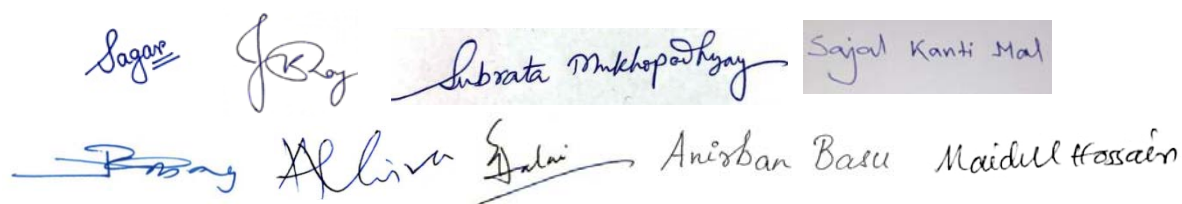 Sagar JRoy Subrata Mukhopadhyay Sajal Kanti Mal
Dalai Anirban Basu Maidul Hossain